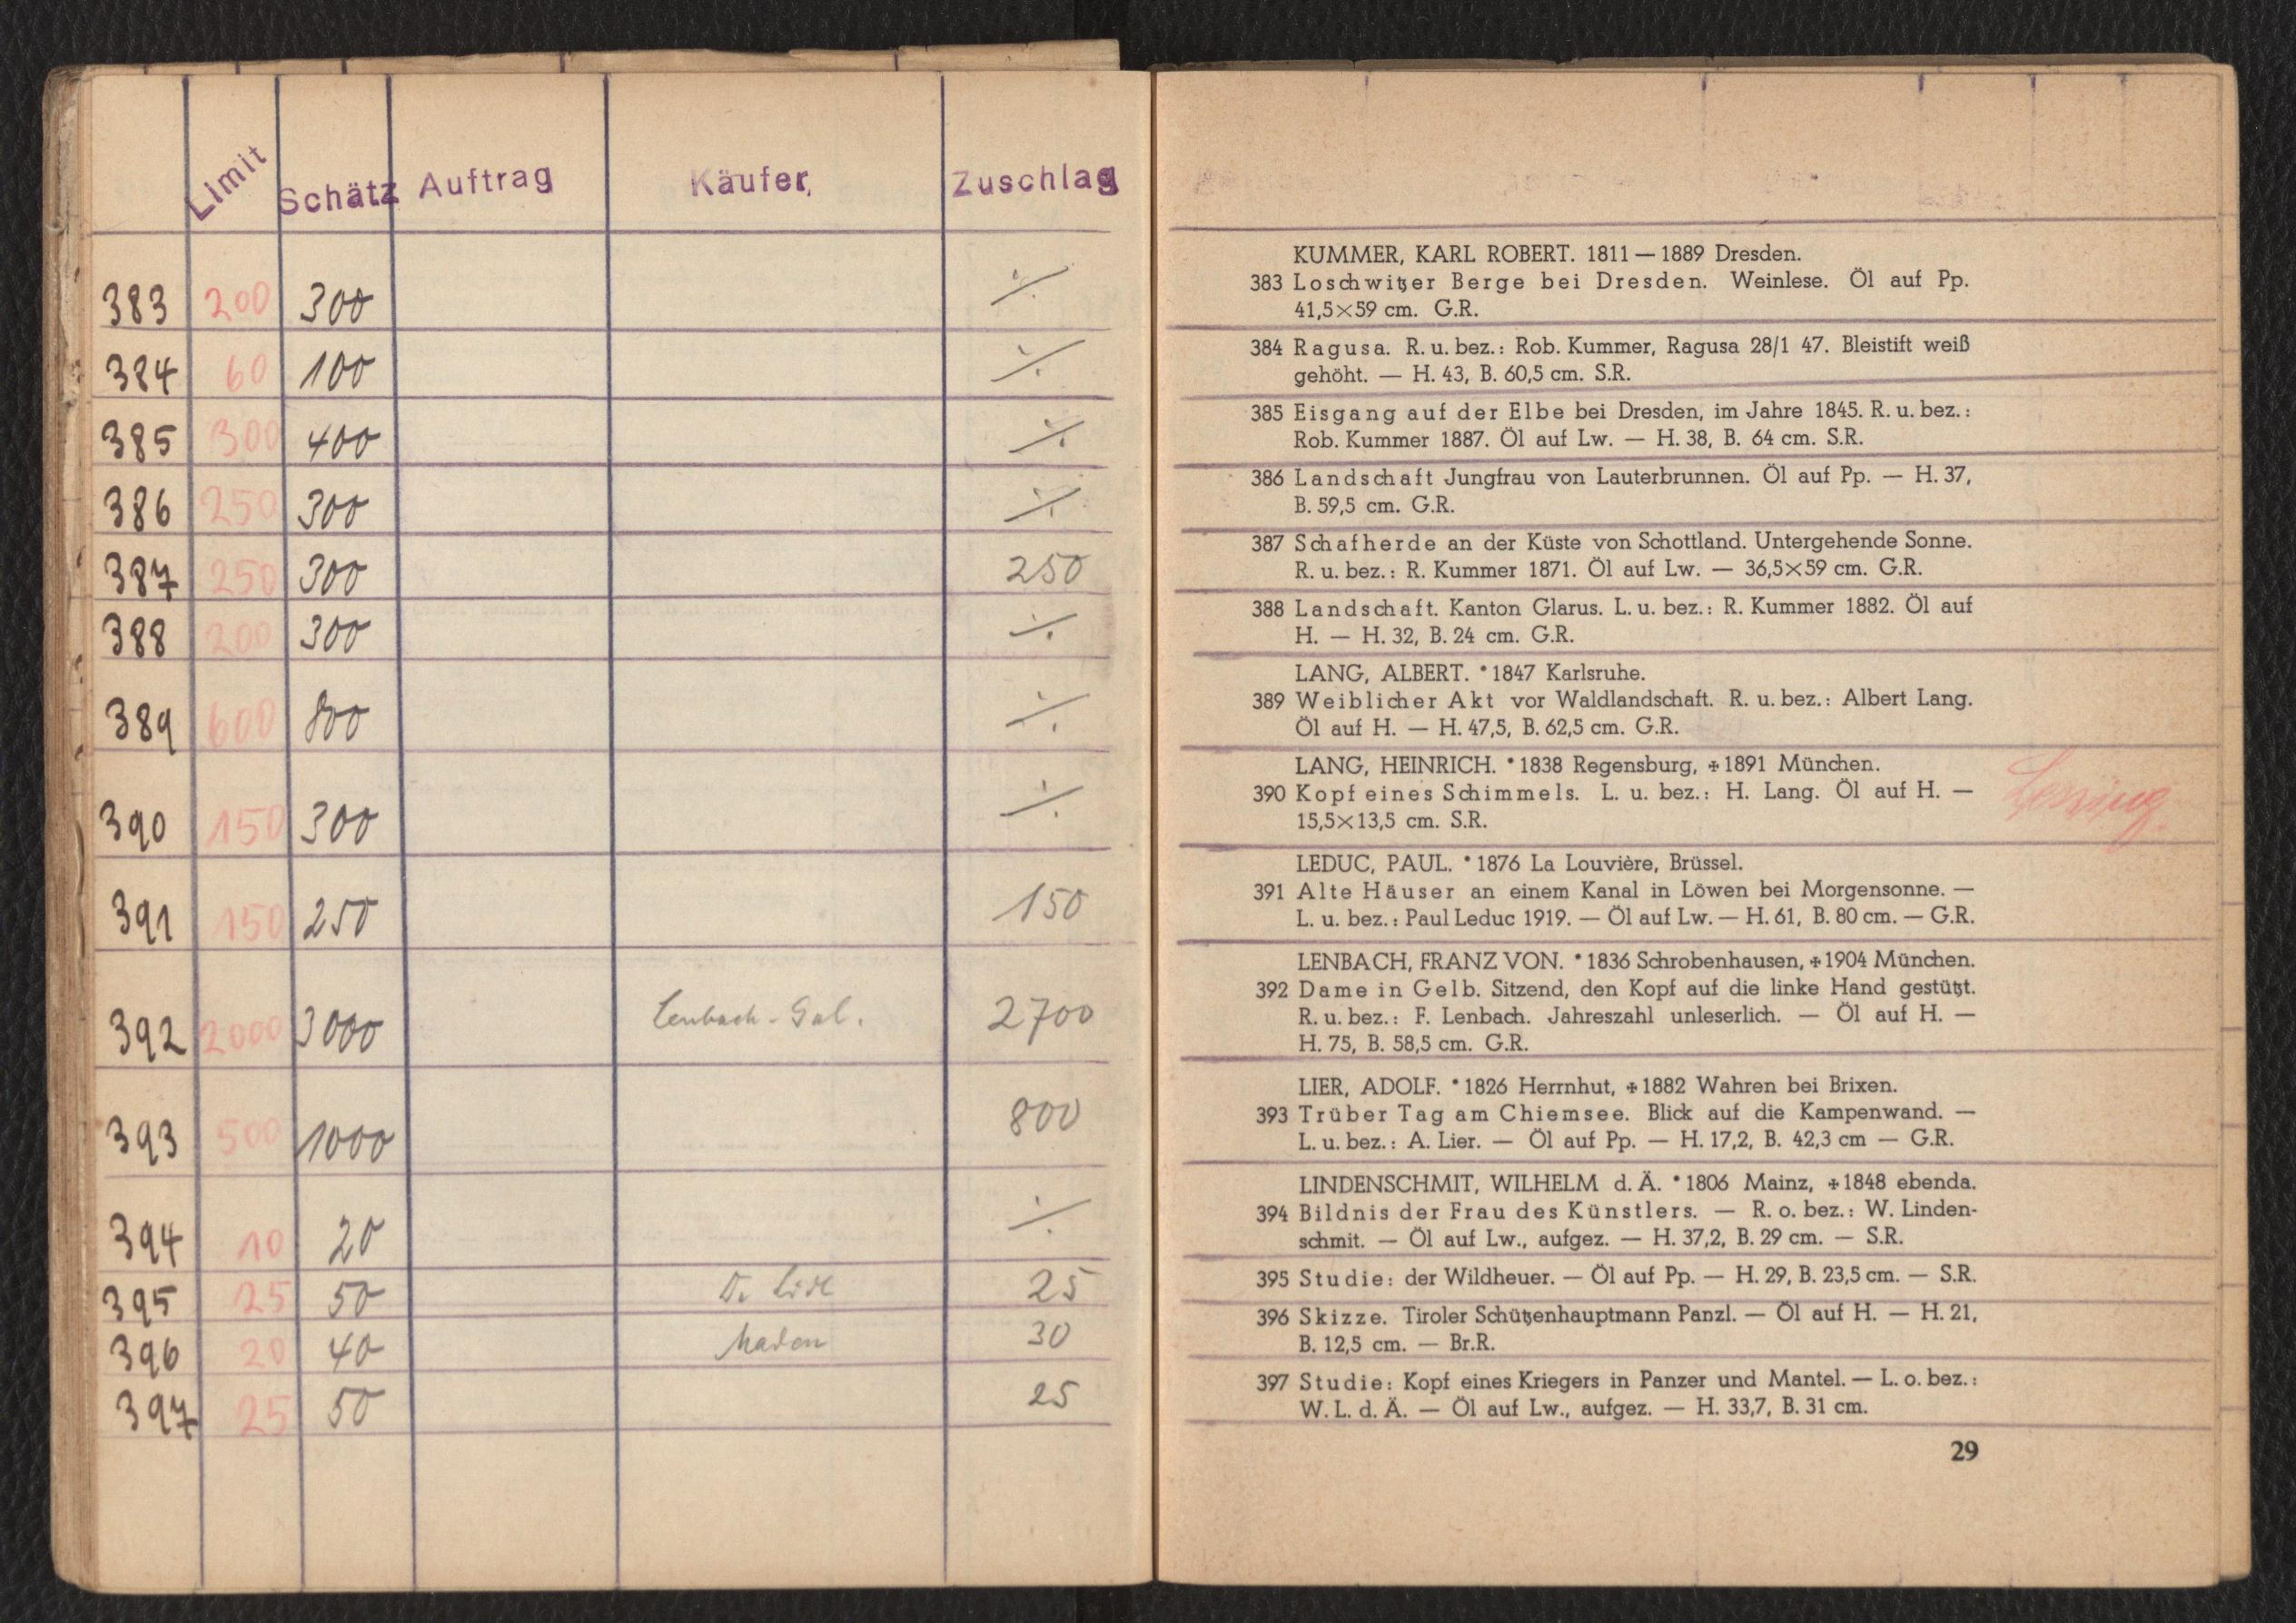 Limit Schätz Auftrag Käufer, Zuschlag
383 200 300 ⁒
384 60 100 ⁒
385 300 400 ⁒
386 250 300 ⁒
387 250 300 250
388 200 300 ⁒
389 600 800 ⁒
390 150 300 ⁒
391 150 250 150
392 2000 3000 Lenbach-Gal. 2700
393 500 1000 800
394 10 20 ⁒
395 25 50 25
396 20 40 30
397 25 50 25
KUMMER, KARL ROBERT. 1811 — 1889 Dresden.
383 Loschwitzer Berge bei Dresden. Weinlese. Öl auf Pp.
41,5×59 cm. G.R.
384 Ragusa. R. u. bez.: Rob. Kummer, Ragusa 28/1 47. Bleistift weiß
gehöht. — H. 43, B. 60,5 cm. S.R.
385 Eisgang auf der Elbe bei Dresden, im Jahre 1845. R. u. bez.:
Rob. Kummer 1887. Öl auf Lw. — H. 38, B. 64 cm. S.R.
386 Landschaft Jungfrau von Lauterbrunnen. Öl auf Pp. — H. 37,
B. 59,5 cm. G.R.
387 Schafherde an der Küste von Schottland. Untergehende Sonne.
R. u. bez.: R. Kummer 1871. Öl auf Lw. — 36,5×59 cm. G.R.
388 Landschaft. Kanton Glarus. L. u. bez.: R. Kummer 1882. Öl auf
H. — H. 32, B. 24 cm. G.R.
LANG, ALBERT. *1847 Karlsruhe.
389 Weiblicher Akt vor Waldlandschaft. R. u. bez.: Albert Lang.
Öl auf H. — H. 47,5, B. 62,5 cm. G.R.
LANG, HEINRICH. *1838 Regensburg, ✠1891 München.
390 Kopf eines Schimmels. L. u. bez.: H. Lang. Öl auf H. —
15,5×13,5 cm. S.R.
LEDUC, PAUL. *1876 La Louvière, Brüssel.
391 Alte Häuser an einem Kanal in Löwen bei Morgensonne. —
L. u. bez.: Paul Leduc 1919. — Öl auf Lw. — H. 61, B. 80 cm. — G.R.
LENBACH, FRANZ VON. *1836 Schrobenhausen, ✠1904 München.
392 Dame in Gelb. Sitzend, den Kopf auf die linke Hand gestützt.
R. u. bez.: F. Lenbach. Jahreszahl unleserlich. — Öl auf H. —
H. 75, B. 58,5 cm. G.R.
LIER, ADOLF. *1826 Herrnhut, ✠1882 Wahren bei Brixen.
393 Trüber Tag am Chiemsee. Blick auf die Kampenwand. —
L. u. bez.: A. Lier. — Öl auf Pp. — H. 17,2, B. 42,3 cm — G.R.
LINDENSCHMIT, WILHELM d. Ä. *1806 Mainz, ✠1848 ebenda.
394 Bildnis der Frau des Künstlers. — R. o. bez.: W. Linden-
schmit. — Öl auf Lw., aufgez. — H. 37,2, B. 29 cm. — S.R.
395 Studie: der Wildheuer. — Öl auf Pp. — H. 29, B. 23,5 cm. — S.R.
396 Skizze. Tiroler Schützenhauptmann Panzl. — Öl auf H. — H. 21,
B. 12,5 cm. — Br.R.
397 Studie: Kopf eines Kriegers in Panzer und Mantel. — L. o. bez.:
W. L. d. Ä. — Öl auf Lw., aufgez. — H. 33,7, B. 31 cm.
29